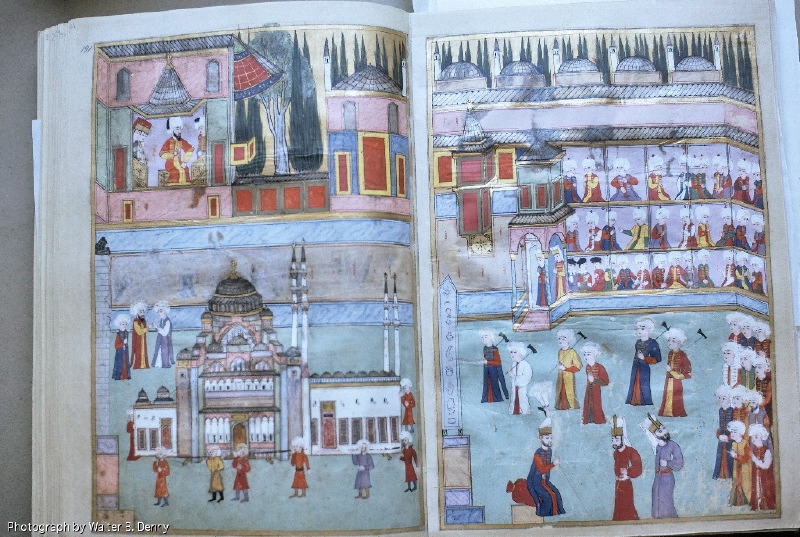 Photograph by Walter B. Denny